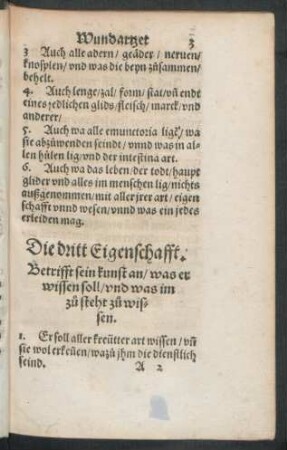 Wundartzet 3
3 Auch alle adern/ geäder/ neruen/
knosplen/ vnd was die beyn zůsammen/
behelt.
4. Auch lenge/ zal/ form/ stat/ vñ endt
eines jedlichen glids/ fleisch/ marck/ vnd
anderer/
5. Auch wa alle emunctoria ligẽ/ wa
sie abzůwenden seindt/ vnnd was in al-
len hülen lig/ vnd der intestina art.
6. Auch wa das leben/ der todt/ haupt
glider vnd alles im menschen lig/ nichts
außgenommen/ mit aller jrer art/ eigen
schafft vnnd wesen/ vnnd was ein jedes
erleiden mag.
Die dritt Eigenschafft.
Betrifft sein kunst an/ was er
wissen soll/ vnd was im
zů steht zů wis-
sen.
1. Er soll aller kreütter art wissen/ vñ
sie wol erkeñen/ wazů jhm die dienstlich
seind. A 2